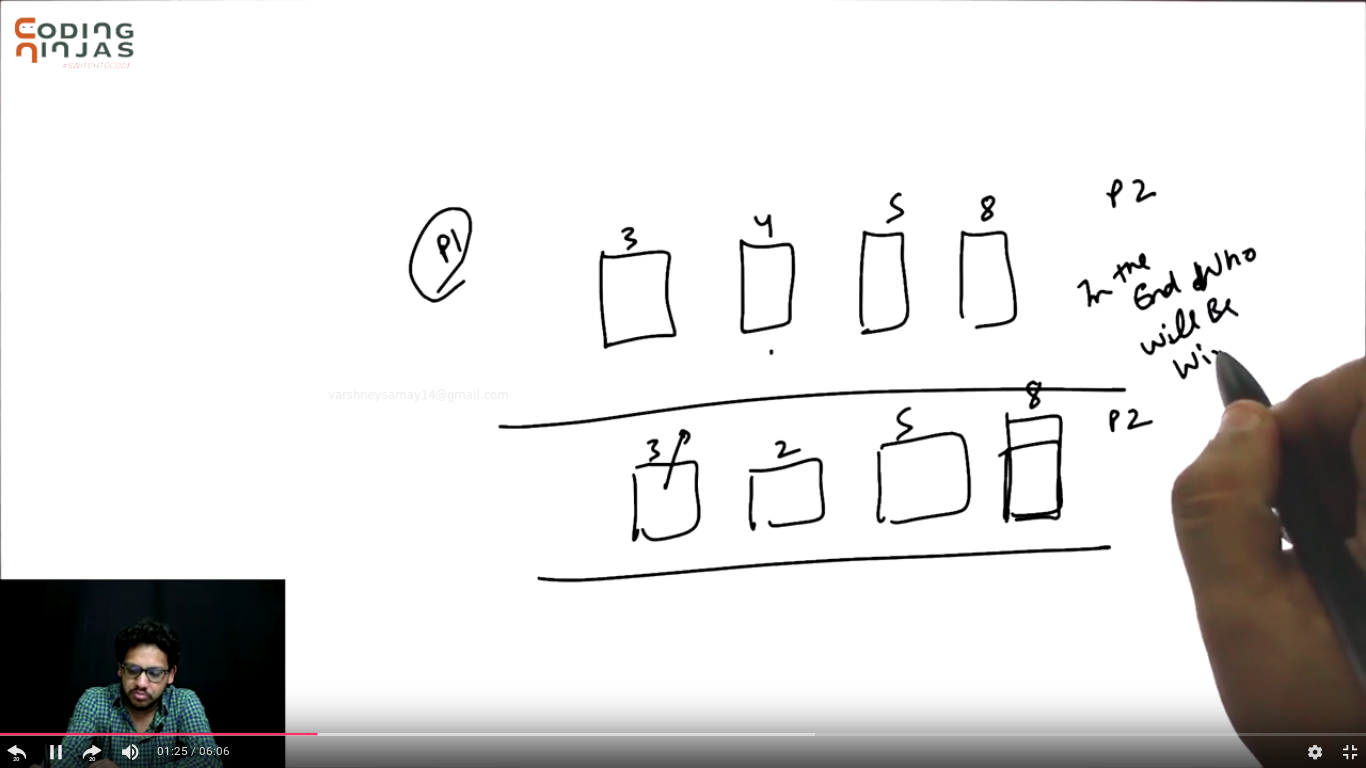 CODING
NINJAS
#SWITCHTOCODE
P1
3 4 5 8
P2
In the
End Who
Will Be
Wi
varshneysamay14@gmail.com
3 2 5 8
P2
20 20 01:25 / 06:06